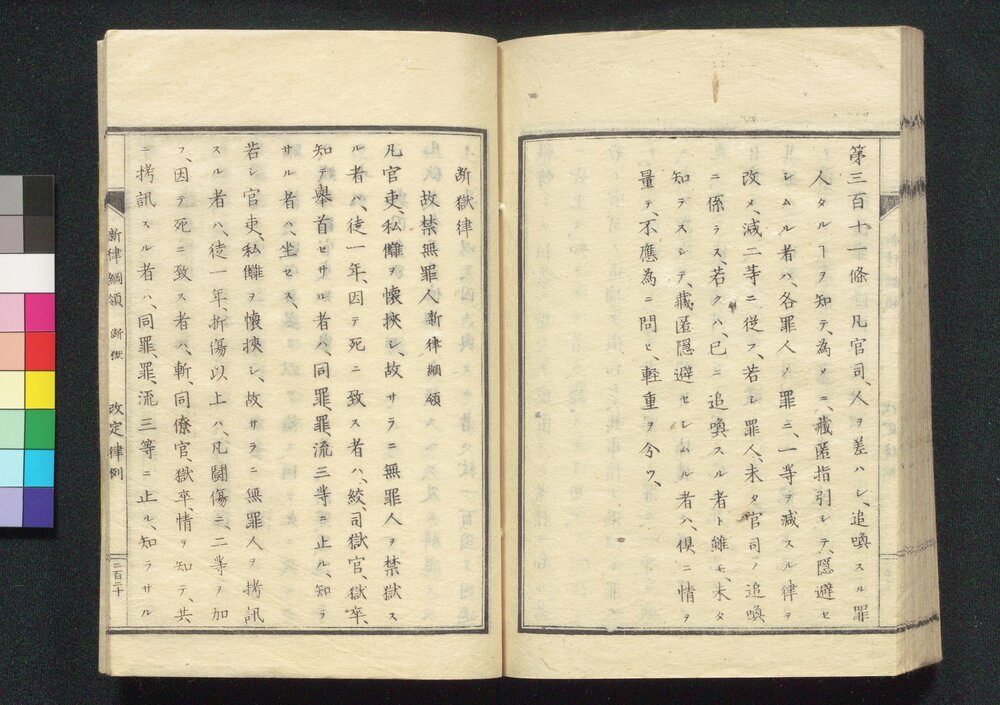 第三百十一條 凡官司、人ヲ差ハシ、追喚スル罪
人タルヿヲ知テ、為メニ、藏匿指引シテ、隱避セ
シムル者ハ、各罪人ノ罪ニ、一等ヲ減スル律ヲ
改メ、減二等ニ從フ、若シ罪人、未タ官司ノ追喚
ニ係ラス、若クハ、已ニ追喚スル者ト雖モ、未タ
知ラスシテ、藏匿隱避セシムル者ハ、俱ニ情ヲ
量テ、不應為ニ問ヒ、輕重ヲ分ツ、
斷獄律
故禁無罪人 新律綱領
凡官吏、私讎ヲ懷挾シ、故サラニ無罪人ヲ禁獄ス
ル者ハ、徒一年、因テ死ニ致ス者ハ、絞、司獄官、獄卒、
知テ舉首セサル者ハ、同罪、罪、流三等ニ止ル、知ラ
サル者ハ、坐セス
若シ官吏、私讎ヲ懷挾シ、故サラニ無罪人ヲ拷訊
スル者ハ、徒一年、折傷以上ハ、凡鬪傷ニ、二等ヲ加
フ、因テ死ニ致ス者ハ、斬、同僚官、獄卒、情ヲ知テ、共
ニ拷訊スル者ハ、同罪、罪、流三等ニ止ル、知ラサル
新律綱領 斷獄 改定律例 二百二十